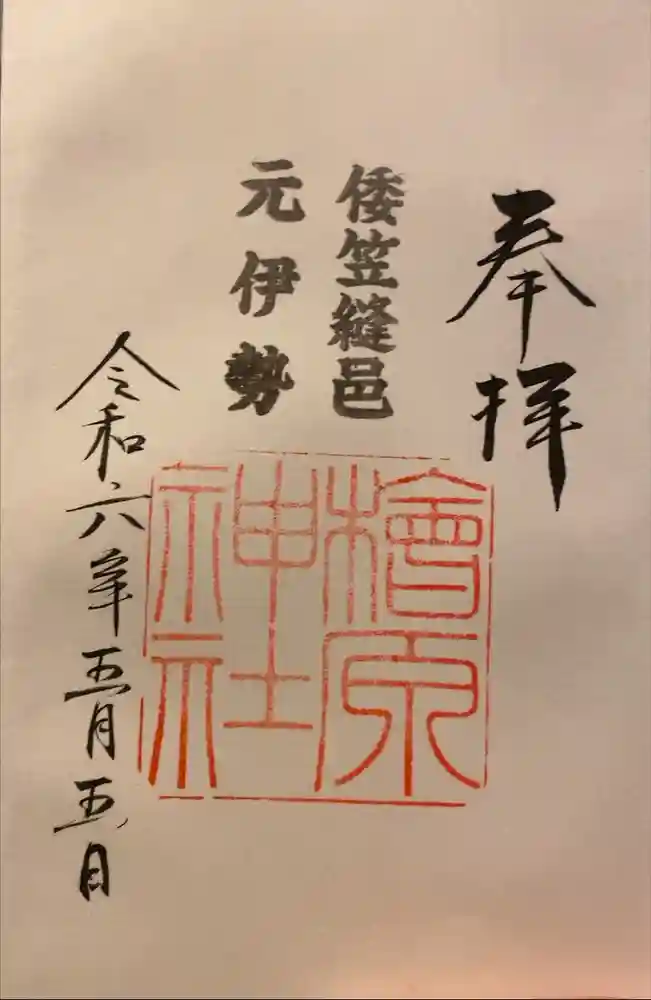 奉拝
倭笠縫邑
元伊勢
檜原
神社
令和六年五月五日